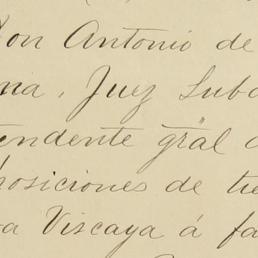 Don Antonio de
na, Juez Subd
tendente gral d
posiciones de tie
va Viscaya á fa